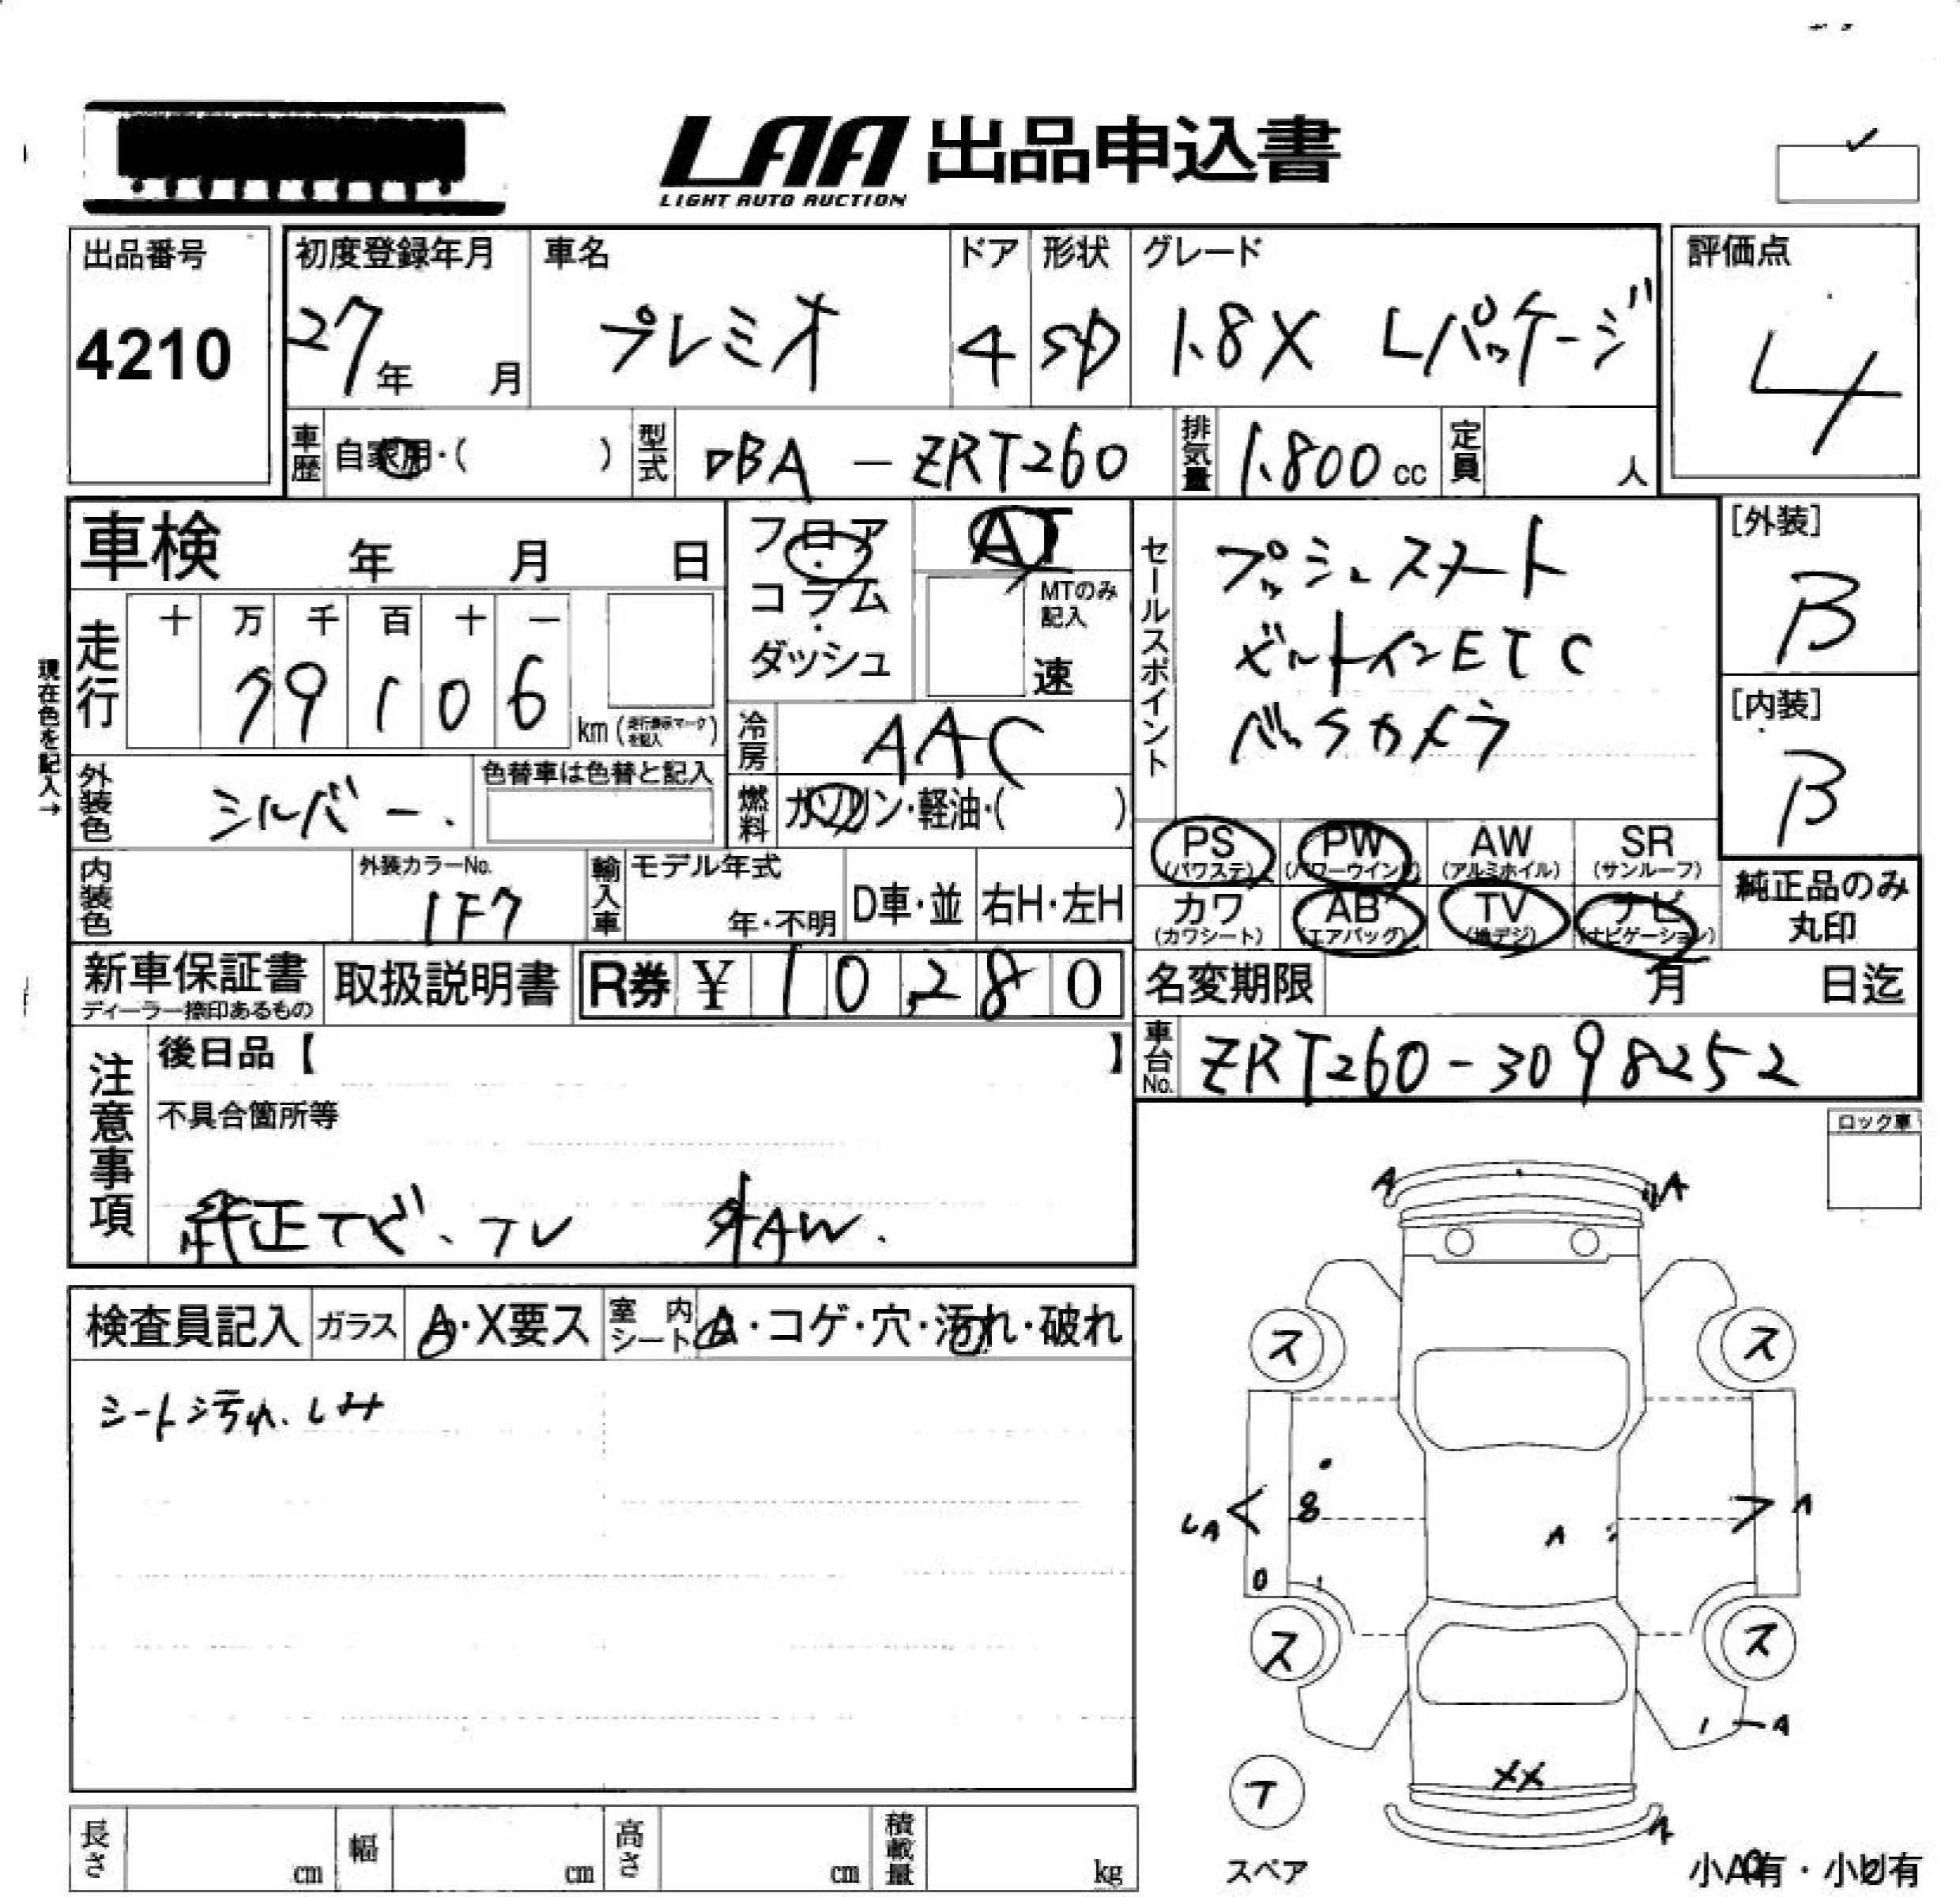 LAA 出品申込書
LIGHT AUTO AUCTION
出品番号
4210
初度登録年月
27年 月
車名
プレミオ
ドア
4
形状
SD
グレード
1.8X Lパッケージ
評価点
4
車歴 自家用・( )
型式 DBA-ZRT260
排気量 1.800cc
定員 人
車検 年 月 日
フロア・コラム・ダッシュ
AT
MTのみ記入
速
走行
十 万 千 百 十 一
7 9 1 0 6
km(走行表示マークを記入)
現在色を記入→
冷房 AAC
外装色 シルバー.
色替車は色替と記入
燃料 ガソリン・軽油・( )
セールスポイント
プッシュスタート
ビルトインETC
バックカメラ
[外装]
B
[内装]
B
PS(パワステ) PW(パワーウインド) AW(アルミホイル) SR(サンルーフ)
カワ(カワシート) AB(エアバッグ) TV(地デジ) ナビ(ナビゲーション)
純正品のみ丸印
内装色
外装カラーNo.
1F7
輸入車
モデル年式
年・不明
D車・並
右H・左H
新車保証書
ディーラー捺印あるもの
取扱説明書
R券 ¥ 10,280
名変期限 月 日迄
車台No. ZRT260-3098252
注意事項
後日品【 】
不具合箇所等
純正ナビ、TV 外AW.
ロック車
検査員記入
ガラス A・X要ス
室内シート A・コゲ・穴・汚れ・破れ
シート汚れ、しみ
A A
ス ス
8
LA < > A
A
0
ス ス
A
XX
A
テ
スペア
小A有・小U有
長さ cm
幅 cm
高さ cm
積載量 kg